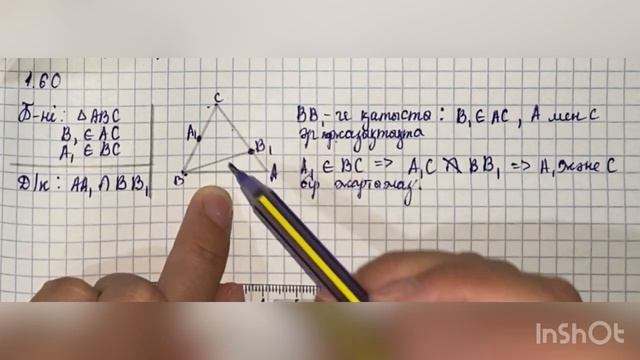 1.60
Б-ні: △ABC
B₁ ∈ AC
A₁ ∈ BC
Д/к: AA₁ ∩ BB₁
C
A₁
B₁
B
A
BB₁-ге қатысты: B₁ ∈ AC, A мен C
әр жазықтықта
A₁ ∈ BC => A₁C ∩̸ BB₁ => A₁ және C
бір жартыжаз.
InShOt